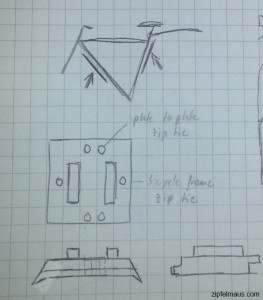 plate to plate
zip tie
bicycle frame
zip tie
zipfelmaus.com